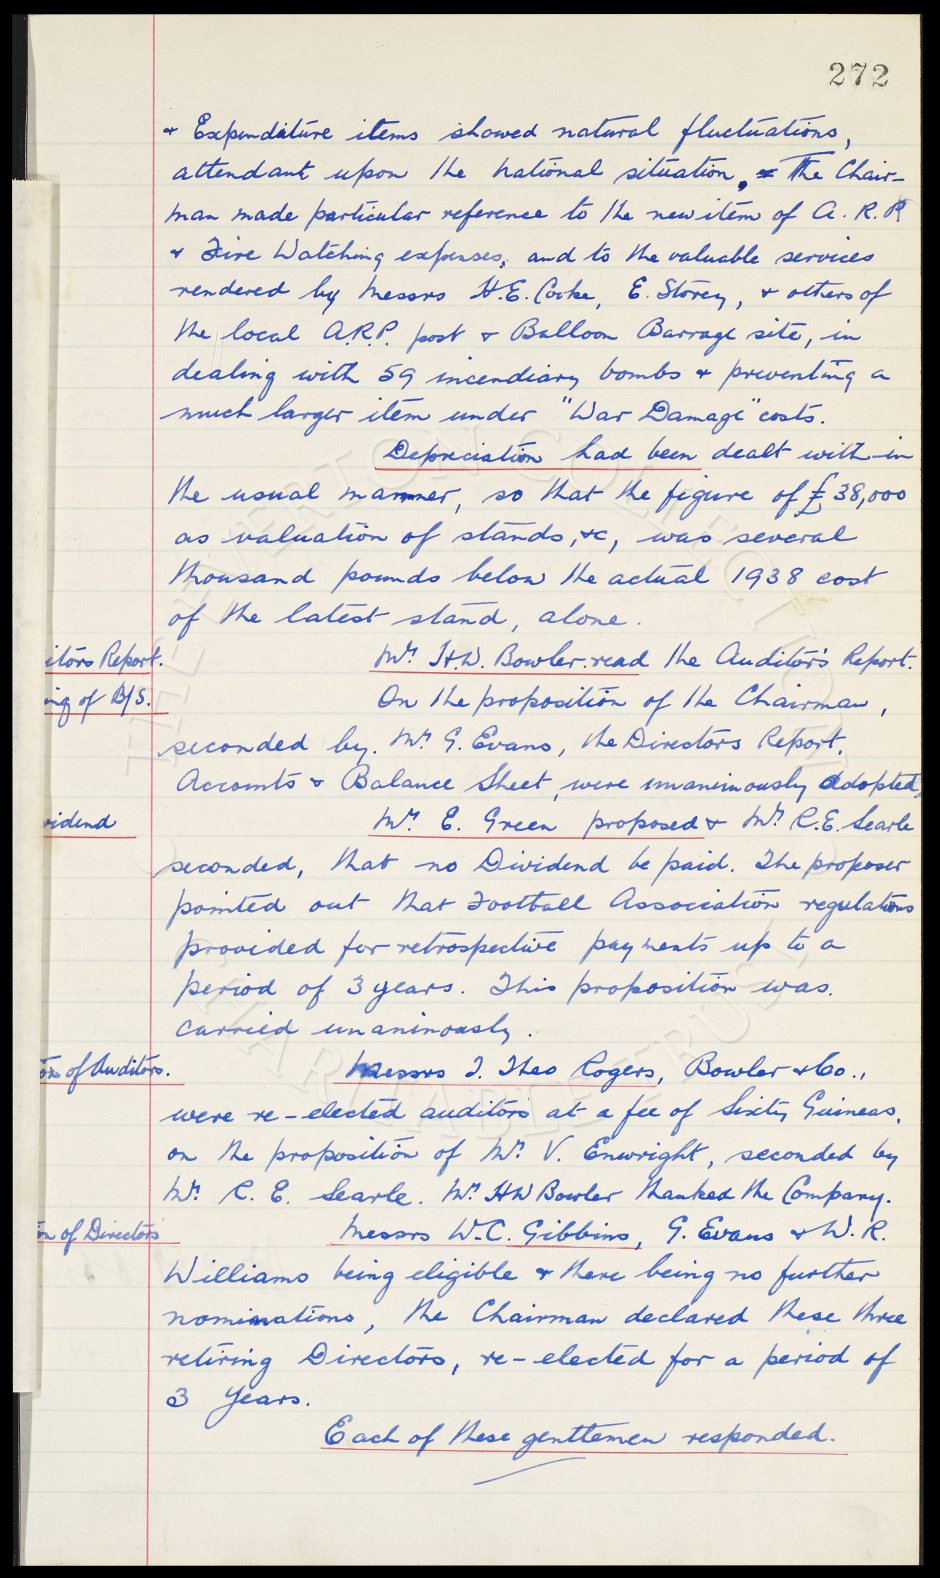 272
& Expenditure items showed natural fluctuations,
attendant upon the national situation. The Chair-
man made particular reference to the new item of A.R.P.
& Fire Watching expenses, and to the valuable services
rendered by Messrs H.E. Cooke, E. Storey, & others of
the local A.R.P. post & Balloon Barrage site, in
dealing with 59 incendiary bombs & preventing a
much larger item under "War Damage" costs.
Depreciation had been dealt with in
the usual manner, so that the figure of £38,000
as valuation of stands, &c, was several
thousand pounds below the actual 1938 cost
of the latest stand, alone.
itors Report.
Mr. H.W. Bowler read the Auditor's Report.
ing of B/S.
On the proposition of the Chairman,
seconded by Mr. G. Evans, the Directors Report,
Accounts & Balance Sheet, were unanimously adopted,
vidend
Mr. E. Green proposed & Mr. R.E. Searle
seconded, that no Dividend be paid. The proposer
pointed out that Football Association regulations
provided for retrospective payments up to a
period of 3 years. This proposition was
carried unanimously.
on of Auditors.
Messrs T. Theo Rogers, Bowler & Co.,
were re-elected auditors at a fee of Sixty Guineas,
on the proposition of Mr. V. Enwright, seconded by
Mr. R. E. Searle. Mr. HW Bowler thanked the Company.
on of Directors
Messrs W.C. Gibbins, G. Evans & W. R.
Williams being eligible & there being no further
nominations, the Chairman declared these three
retiring Directors, re-elected for a period of
3 years.
Each of these gentlemen responded.
THE EVERTON COLLECTION
CHARITABLE TRUST